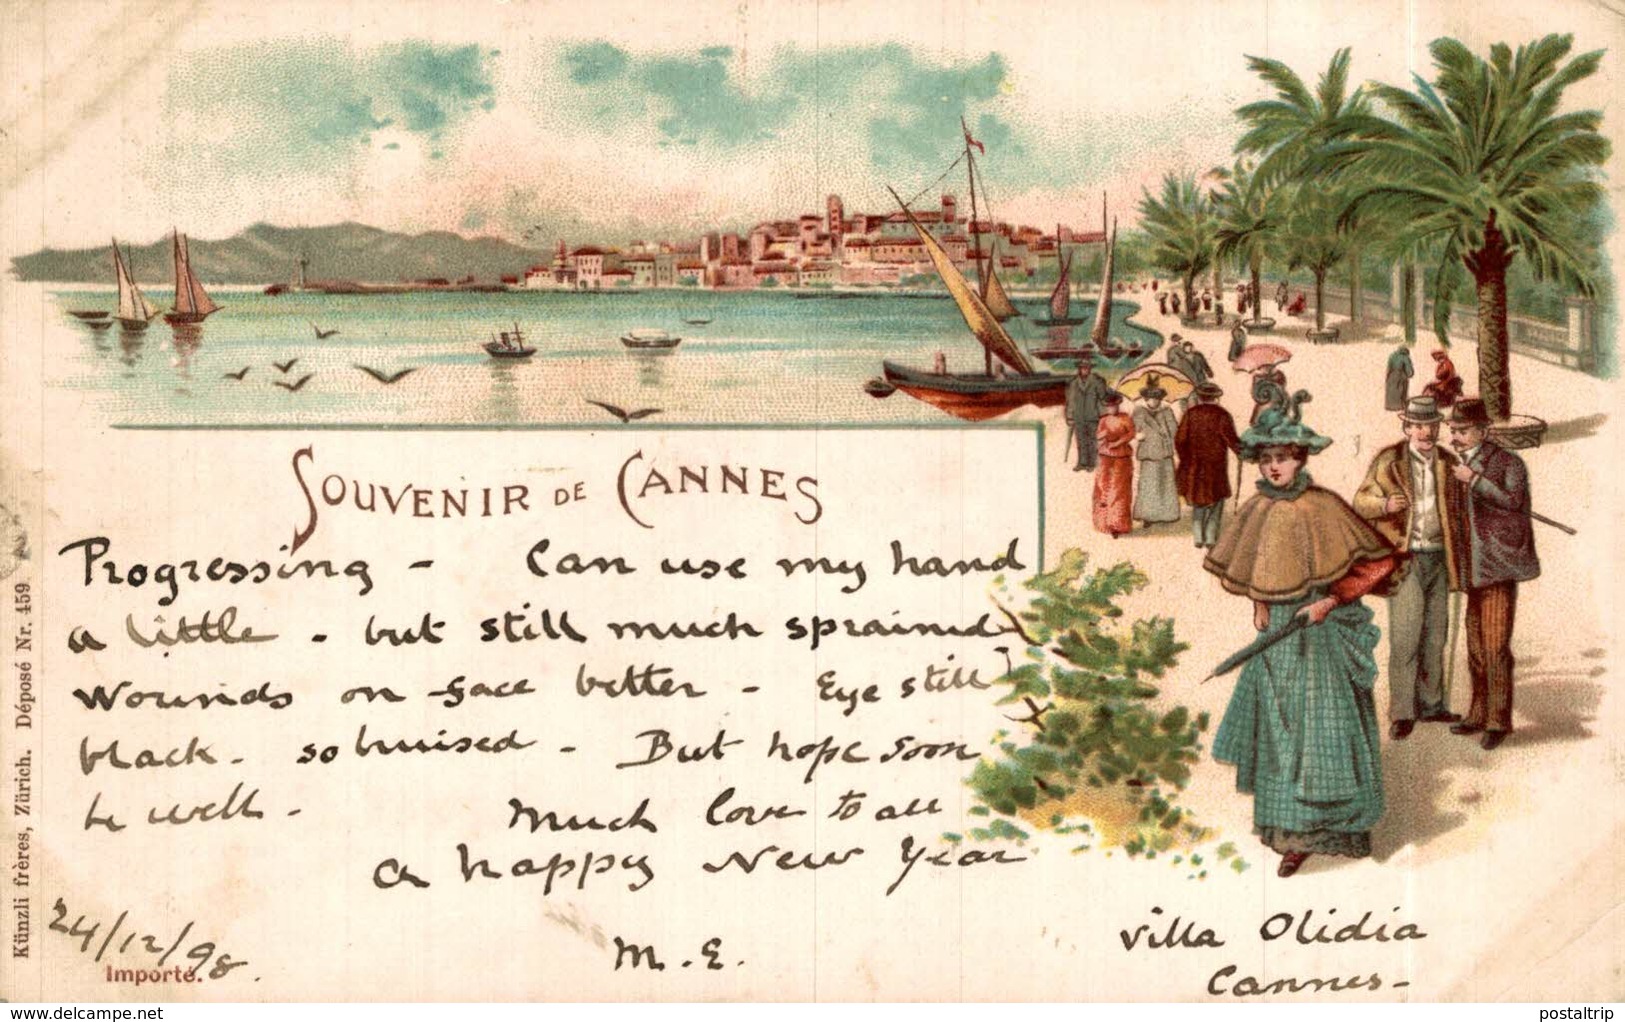 SOUVENIR DE CANNES
Progressing - Can use my hand
a little - but still much sprained
Wounds on face better - Eye still
black - so bruised - But hope soon
be well -
Much love to all
a happy New Year
24/12/98
M.E.
Villa Olidia
Cannes -
Importé.
Künzli frères, Zürich. Déposé Nr. 459
www.delcampe.net
postaltrip